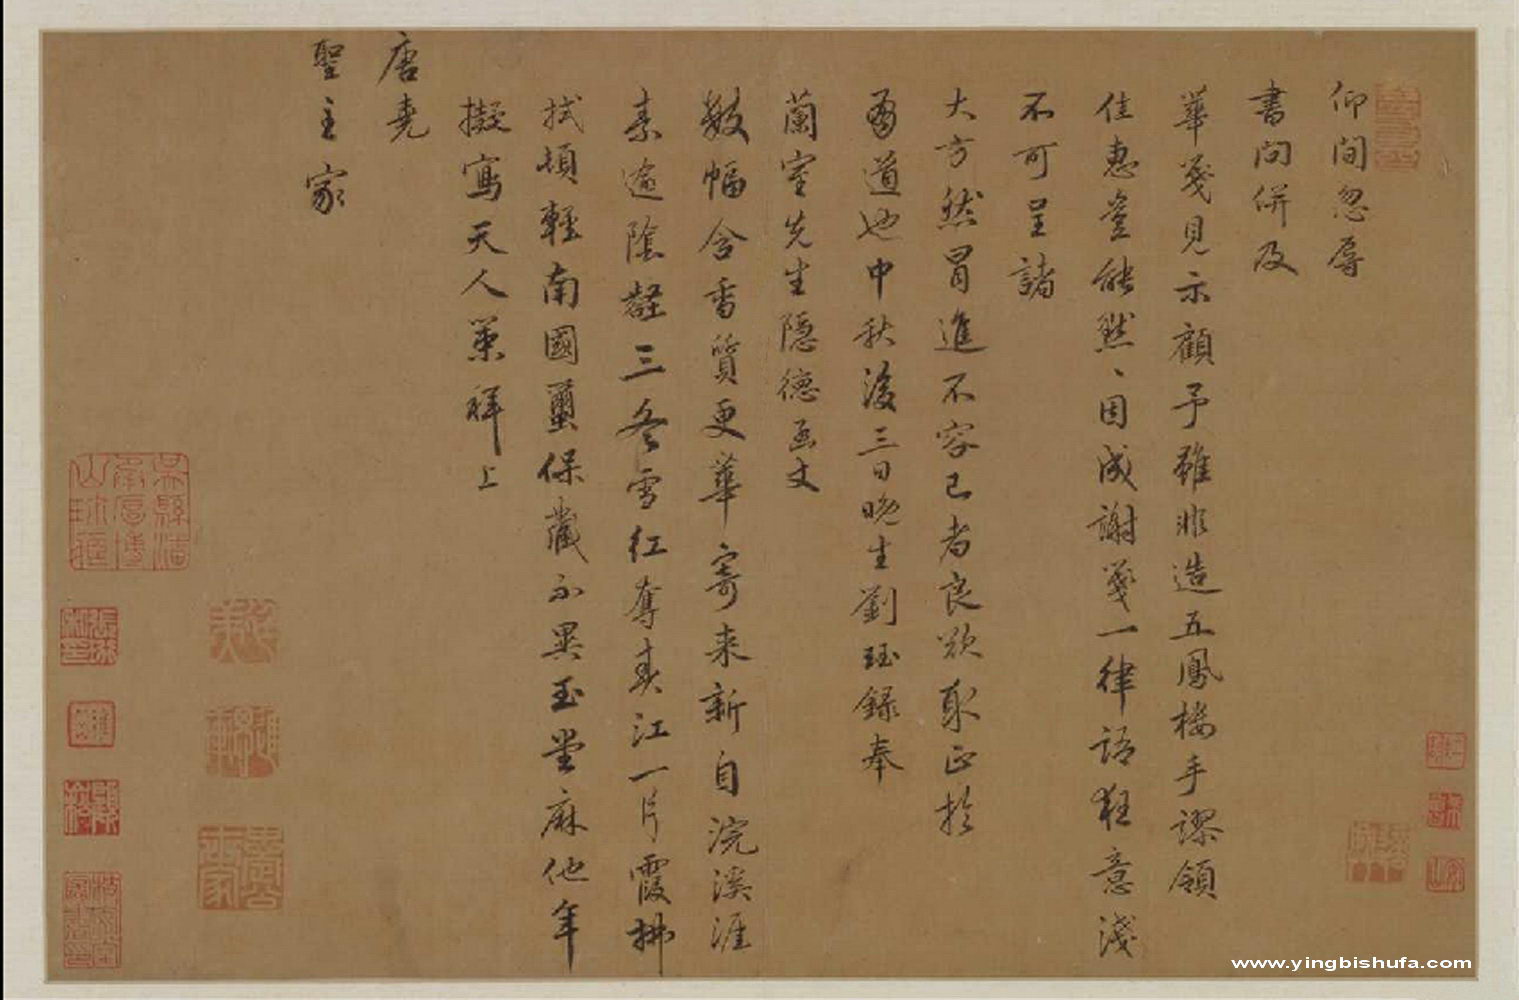 仰間忽辱
書問併及
華箋見示顧予雖非造五鳳樓手謬領
佳惠豈能然〻因成謝箋一律語狂意淺
不可呈諸
大方然冒進不容已者良欲取正於
有道也中秋後三日晚生劉珏錄奉
蘭室先生隱德函丈
數幅含香質更華寄来新自浣溪涯
素逾陰壑三冬雪紅奪春江一片霞拂
拭頓輕南國璽保藏不異玉堂麻他年
擬寫天人策拜上
唐堯
聖主家
www.yingbishufa.com